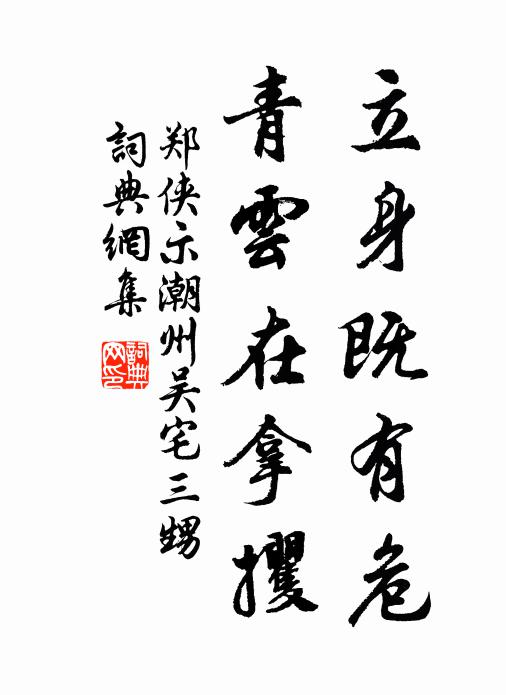 立身既有危
青雲在拿攫
郑侠示潮州吴宅三甥
詞典網集
詞典网印